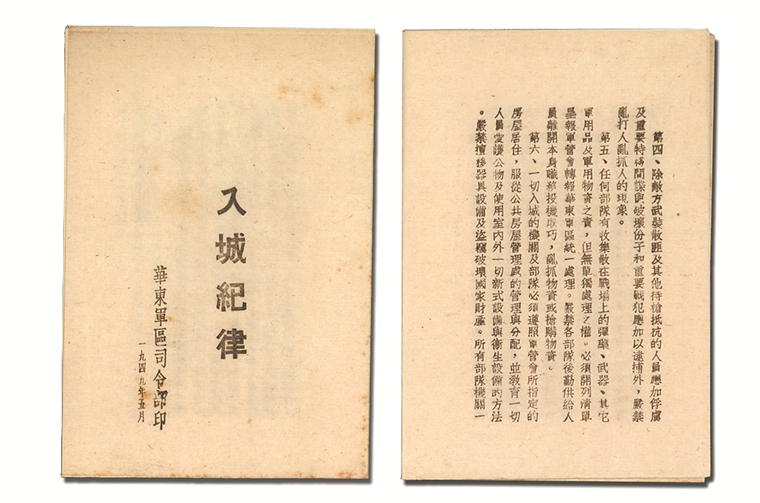 入城紀律
華東軍區司令部印
一九四九年五月
第四、除敵方武裝散匪及其他持槍抵抗的人員應加俘虜
及重要特務間諜與破壞份子和重要戰犯應加以逮捕外，嚴禁
亂打人亂抓人的現象。
第五、任何部隊有收集散在戰場上的彈藥、武器、其它
軍用品及軍用物資之責，但無單獨處理之權。必須開列清單
呈報軍管會轉報華東軍區統一處理。嚴禁各部隊後勤供給人
員離開本身職務投機取巧，亂抓物資或搶購物資。
第六、一切入城的機關及部隊必須遵照軍管會所指定的
房屋居住，服從公共房屋管理處的管理與分配，並教育一切
人員愛護公物及使用室內外一切新式設備與衛生設備的方法
。嚴禁擅移器具設備及盜竊破壞國家財產。所有部隊機關一